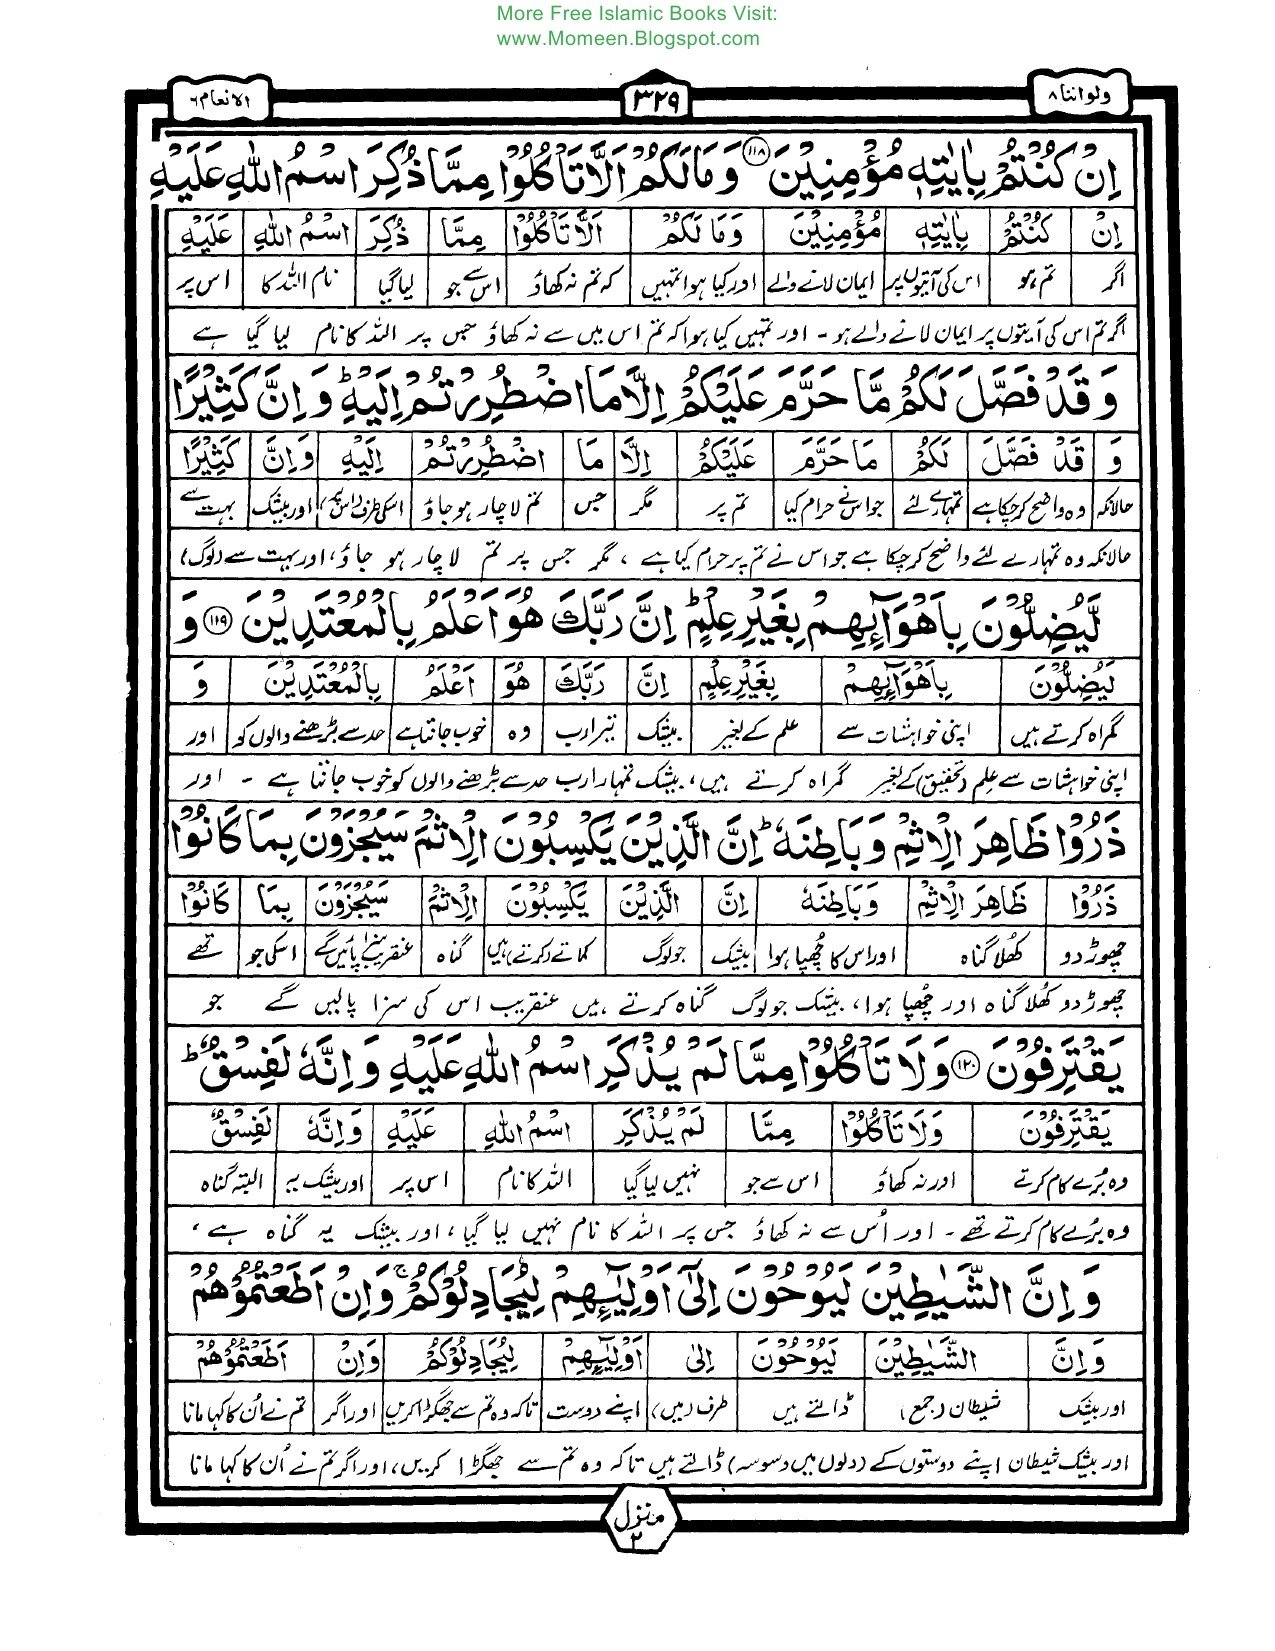 More Free Islamic Books Visit:
www.Momeen.Blogspot.com
ولواننا ٨
٣٢٩
الانعام ٦
اِنْ كُنْتُمْ بِاٰيٰتِهٖ مُؤْمِنِيْنَ ﴿١١٨﴾ وَمَا لَكُمْ اَلَّا تَاْكُلُوْا مِمَّا ذُكِرَ اسْمُ اللّٰهِ عَلَيْهِ
اِنْ كُنْتُمْ بِاٰيٰتِهٖ مُؤْمِنِيْنَ وَمَا لَكُمْ اَلَّا تَاْكُلُوْا مِمَّا ذُكِرَ اسْمُ اللّٰهِ عَلَيْهِ
اگر تم ہو اس کی آیتوں پر ایمان لانے والے اور کیا ہوا تمہیں کہ تم نہ کھاؤ اس سے جو لیا گیا نام اللہ کا اس پر
اگر تم اس کی آیتوں پر ایمان لانے والے ہو ۔ اور تمہیں کیا ہوا کہ تم اس میں سے نہ کھاؤ جس پر اللہ کا نام لیا گیا ہے
وَقَدْ فَصَّلَ لَكُمْ مَّا حَرَّمَ عَلَيْكُمْ اِلَّا مَا اضْطُرِرْتُمْ اِلَيْهِ ؕ وَاِنَّ كَثِيْرًا
وَ قَدْ فَصَّلَ لَكُمْ مَا حَرَّمَ عَلَيْكُمْ اِلَّا مَا اضْطُرِرْتُمْ اِلَيْهِ وَاِنَّ كَثِيْرًا
حالانکہ وہ واضح کرچکا ہے تمہارے لئے جو اس نے حرام کیا تم پر مگر جس تم لاچار ہو جاؤ اسکی طرف (اس پر) اور بیشک بہت سے
حالانکہ وہ تمہارے لئے واضح کرچکا ہے جو اس نے تم پر حرام کیا ہے ، مگر جس پر تم لاچار ہو جاؤ، اور بہت سے (لوگ)
لَّيُضِلُّوْنَ بِاَهْوَآئِهِمْ بِغَيْرِ عِلْمٍ ؕ اِنَّ رَبَّكَ هُوَ اَعْلَمُ بِالْمُعْتَدِيْنَ ﴿١١٩﴾ وَ
لَيُضِلُّوْنَ بِاَهْوَآئِهِمْ بِغَيْرِ عِلْمٍ اِنَّ رَبَّكَ هُوَ اَعْلَمُ بِالْمُعْتَدِيْنَ وَ
گمراہ کرتے ہیں اپنی خواہشات سے علم کے بغیر بیشک تیرا رب وہ خوب جانتا ہے حد سے بڑھنے والوں کو اور
اپنی خواہشات سے علم (تحقیق) کے بغیر گمراہ کرتے ہیں، بیشک تمہارا رب حد سے بڑھنے والوں کو خوب جانتا ہے ۔ اور
ذَرُوْا ظَاهِرَ الْاِثْمِ وَبَاطِنَهٗ ؕ اِنَّ الَّذِيْنَ يَكْسِبُوْنَ الْاِثْمَ سَيُجْزَوْنَ بِمَا كَانُوْا
ذَرُوْا ظَاهِرَ الْاِثْمِ وَبَاطِنَهٗ اِنَّ الَّذِيْنَ يَكْسِبُوْنَ الْاِثْمَ سَيُجْزَوْنَ بِمَا كَانُوْا
چھوڑ دو کھُلا گناہ اور اس کا چھُپا ہوا بیشک جو لوگ کماتے (کرتے) ہیں گناہ عنقریب سزا پائیں گے اسکی جو تھے
چھوڑ دو کھُلا گناہ اور چھُپا ہوا، بیشک جو لوگ گناہ کرتے ہیں عنقریب اس کی سزا پالیں گے جو
يَقْتَرِفُوْنَ ﴿١٢٠﴾ وَلَا تَاْكُلُوْا مِمَّا لَمْ يُذْكَرِ اسْمُ اللّٰهِ عَلَيْهِ وَاِنَّهٗ لَفِسْقٌ ؕ
يَقْتَرِفُوْنَ وَلَا تَاْكُلُوْا مِمَّا لَمْ يُذْكَرِ اسْمُ اللّٰهِ عَلَيْهِ وَاِنَّهٗ لَفِسْقٌ
وہ بُرے کام کرتے اور نہ کھاؤ اس سے جو نہیں لیا گیا اللہ کا نام اس پر اور بیشک یہ البتہ گناہ
وہ بُرے کام کرتے تھے ۔ اور اُس سے نہ کھاؤ جس پر اللہ کا نام نہیں لیا گیا، اور بیشک یہ گناہ ہے ،
وَاِنَّ الشَّيٰطِيْنَ لَيُوْحُوْنَ اِلٰٓى اَوْلِيٰٓئِهِمْ لِيُجَادِلُوْكُمْ ۚ وَاِنْ اَطَعْتُمُوْهُمْ
وَاِنَّ الشَّيٰطِيْنَ لَيُوْحُوْنَ اِلٰى اَوْلِيٰٓئِهِمْ لِيُجَادِلُوْكُمْ وَاِنْ اَطَعْتُمُوْهُمْ
اور بیشک شیطان (جمع) ڈالتے ہیں طرف (میں) اپنے دوست تاکہ وہ تم سے جھگڑا کریں اور اگر تم نے اُن کا کہا مانا
اور بیشک شیطان اپنے دوستوں کے (دلوں میں وسوسہ) ڈالتے ہیں تاکہ وہ تم سے جھگڑا کریں، اور اگر تم نے اُن کا کہا مانا
منزل ٢